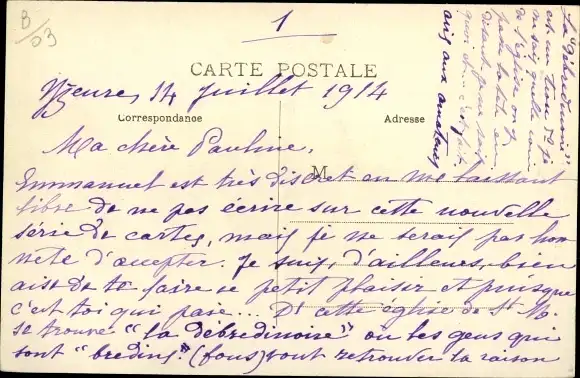 B/03
1
CARTE POSTALE
Yzeure, 14 Juillet 1914
Correspondance
Adresse
M
Ma chère Pauline,
Emmanuel est très discret en me laissant
libre de ne pas écrire sur cette nouvelle
série de cartes, mais je ne serais pas hon
nete d'accepter. Je suis, d'ailleurs, bien
aise de te faire ce petit plaisir et puisque
c'est toi qui paie... Ds cette église de St
se trouve "la Débredinoire" où les gens qui
sont "bredins" (fous) vont retrouver la raison
La "Débredinoire"
est un trou
de l'église où
passe la tête en
avis aux amateurs